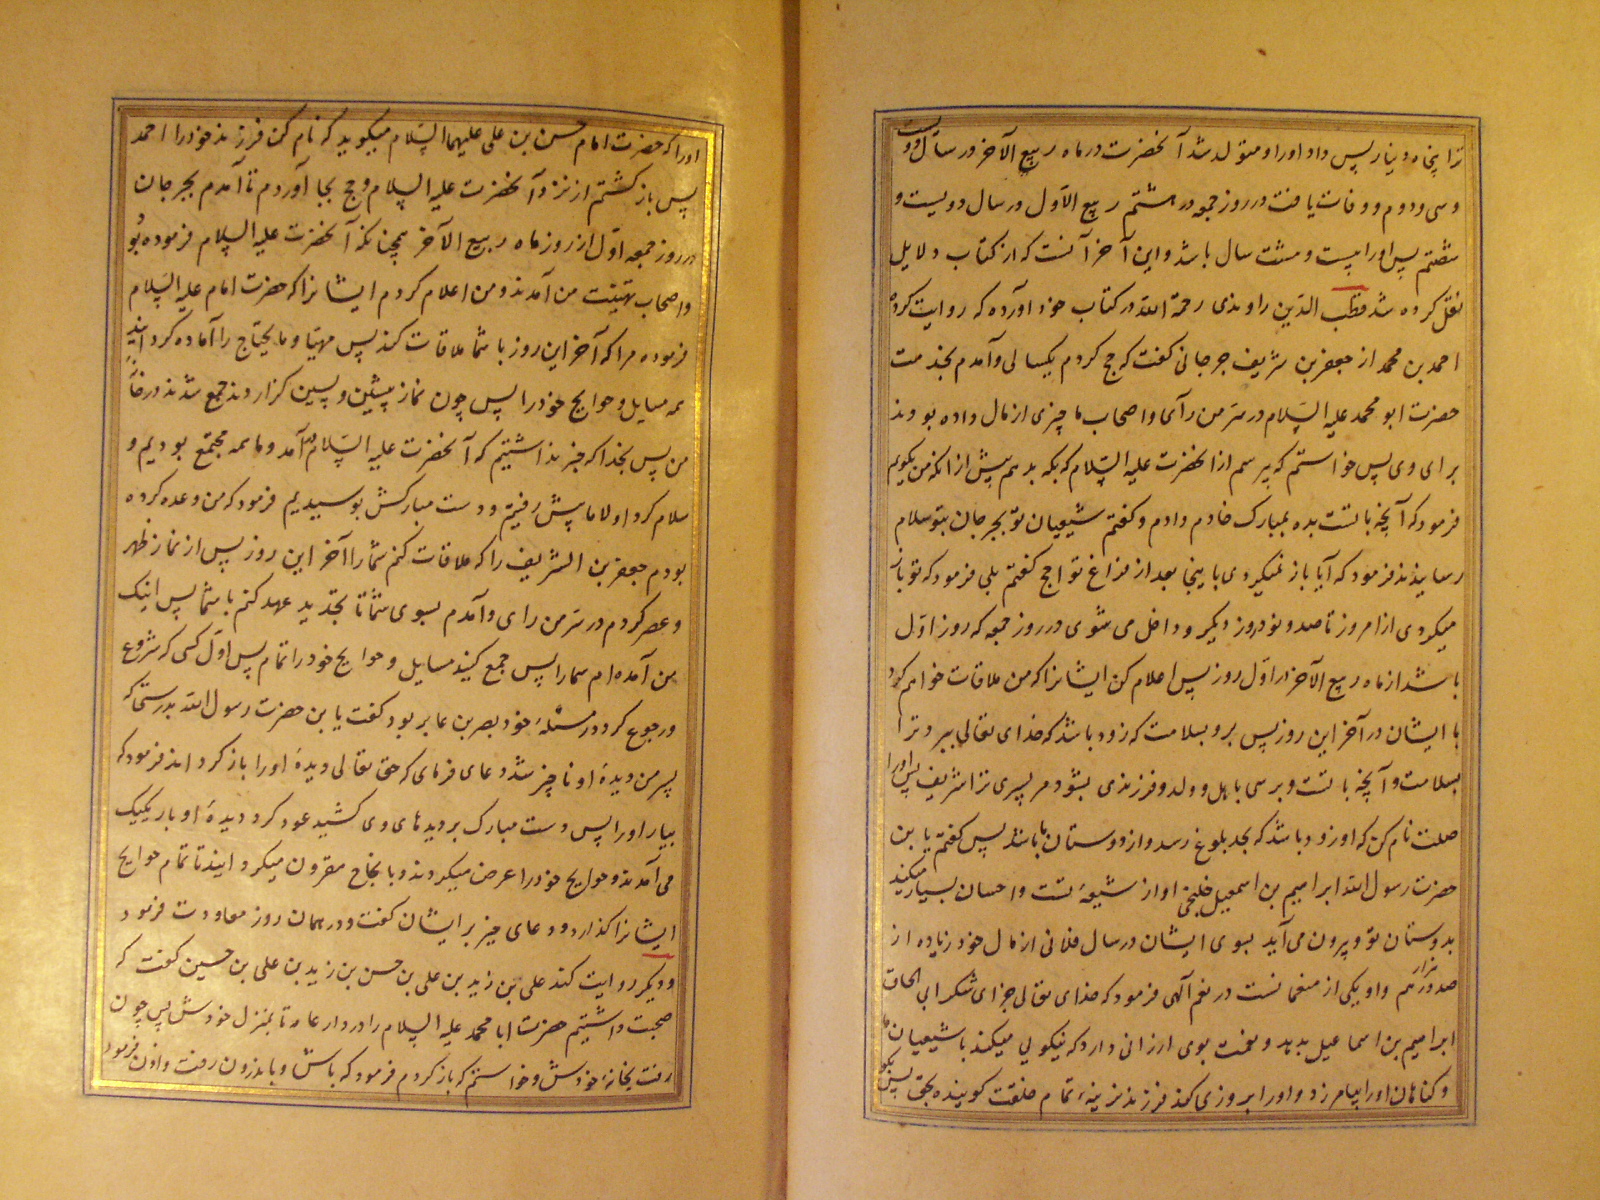 ترا پنجاه دینار پس داد او را و متولد شد آنحضرت در ماه ربیع الآخر در سال دویست
و سی و دوم و وفات یافت در روز جمعه در هشتم ربیع الاول در سال دویست و
شصتم پس او را بیست و هشت سال باشد و این آخر آنست که از کتاب دلایل
نقل کرده شد قطب الدین راوندی رحمة الله در کتاب خود آورده که روایت کرده
احمد بن محمد از جعفر بن شریف جرجانی گفت که حج کردم یکسالی و آمدم بخدمت
حضرت ابو محمد علیه السلام در سر من رآی و اصحاب ما چیزی از مال داده بودند
برای وی پس خواستم که بپرسم از آنحضرت علیه السلام که بکه بدهم پیش از آنکه من بگویم
فرمود که آنچه با تست بده بمبارک خادم دادم و گفتم شیعیان تو بجرجان بتو سلام
رسانیدند فرمود که آیا باز نمیگردی باینجا بعد از فراغ تو از حج گفتم بلی فرمود که تو باز
میگردی از امروز تا صد و نود روز دیگر و داخل می شوی در روز جمعه که روز اول
باشد از ماه ربیع الآخر در اول روز پس اعلام کن ایشانرا که من ملاقات خواهم کرد
با ایشان در آخر این روز پس برو بسلامت که زود باشد که خدای تعالی ببرد ترا
بسلامت و آنچه با تست و برسی باهل و ولد و فرزندی بشود مر پسری ترا شریف پس او را
صلت نام کن که او زود باشد که بحد بلوغ رسد و از دوستان ما باشد پس گفتم یا بن
حضرت رسول الله ابراهیم بن اسمعیل خلنجی او از شیعهٔ تست و احسان بسیار میکند
بدوستان تو و بیرون می آید بسوی ایشان در سال فلانی از مال خود زیاده از
صد هزار درهم و او یکی از منعمانست در نعم الهی فرمود که خدای تعالی جزای شکر ابی اسحاق
ابراهیم بن اسماعیل بدهد و نعمت بوی ارزانی دارد که نیکویی میکند با شیعیان ما
و گناهان او را بیامرزد و او را بروزی کند فرزند نرینه تمام خلقت گوینده بحق پس بگو
او را که حضرت امام حسن بن علی علیهما السلام میگوید که نام کن فرزند خود را احمد
پس بازگشتم از نزد آنحضرت علیه السلام و حج بجا آوردم تا آمدم بجرجان
در روز جمعه اول از روز ماه ربیع الآخر همچنانکه آنحضرت علیه السلام فرموده بود
و اصحاب بتهنیت من آمدند و من اعلام کردم ایشانرا که حضرت امام علیه السلام
فرموده مرا که آخر این روز با شما ملاقات کند پس مهیا و ما یحتاج را آماده گردانید
همه مسایل و حوایج خود را پس چون نماز پیشین و پسین گزاردند جمع شدند در خانه
من پس بخدا که خبر نداشتیم که آنحضرت علیه السلام آمد و ما همه مجتمع بودیم و
سلام کرد اولا ما پیش رفتیم و دست مبارکش بوسیدیم فرمود که من وعده کرده
بودم جعفر بن الشریف را که ملاقات کنم شما را آخر این روز پس از نماز ظهر
و عصر کردم در سر من رای و آمدم بسوی شما تا تجدید عهد کنم با شما پس اینک
من آمده ام شما را پس جمع کنید مسایل و حوایج خود را تمام پس اول کسی که شروع
و رجوع کرد در مسئلهٔ خود بصر بن عابر بود گفت یا بن حضرت رسول الله بدرستی که
پسر من دیدهٔ او ناچیز شد دعای فرمای که حق تعالی دیدهٔ او را باز گرداند فرمود که
بیار او را پس دست مبارک بر دیدهای وی کشید عود کرد دیدهٔ او باز یکیک
می آمدند و حوایج خود را عرض میکردند و بانجاح مقرون میگردانید تا تمام حوایج
ایشانرا گذارد و دعای خیر بر ایشان گفت و در همان روز معاودت فرمود
و دیگر روایت کند علی بن زید بن علی بن حسن بن زید بن علی بن حسین گفت که
صحبت داشتیم حضرت ابا محمد علیه السلام را در دار عامه تا بمنزل خودش پس چون
رفت بخانه خودش و خواستم که بازگردم فرمود که باش و باندرون رفت و اذن فرمود